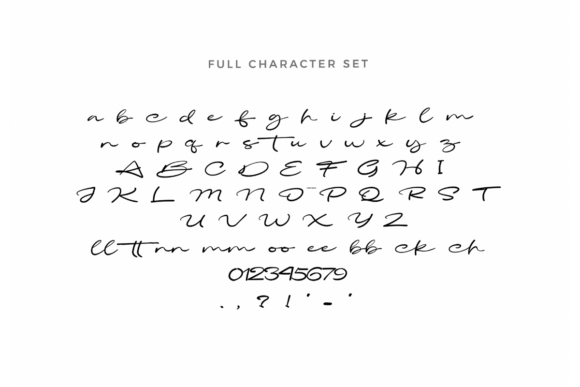 FULL CHARACTER SET
a b c d e f g h i j k l m
n o p q r s t u v w x y z
A B C D E F G H I
J K L M N O P Q R S T
U V W X Y Z
ll tt nn mm oo ee bb ck ch
012345679
. , ? ! ' - '